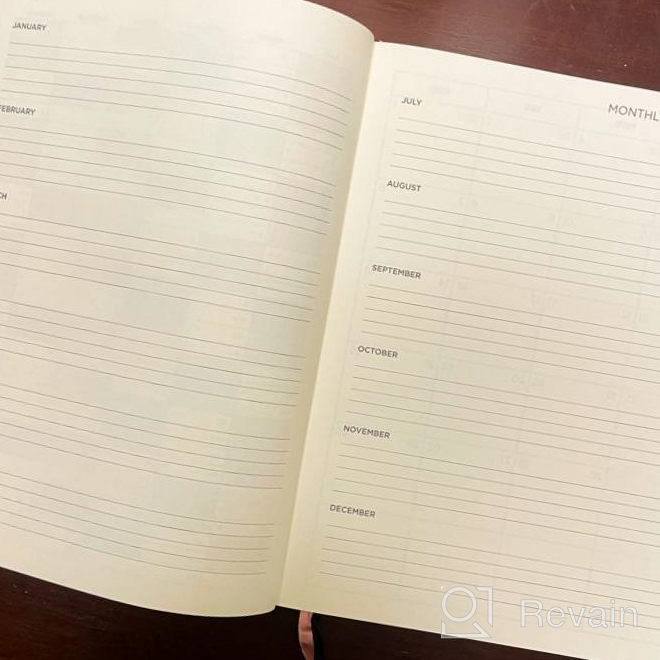 JANUARY
FEBRUARY
CH
MONTHL
JULY
AUGUST
SEPTEMBER
OCTOBER
NOVEMBER
DECEMBER
Revain